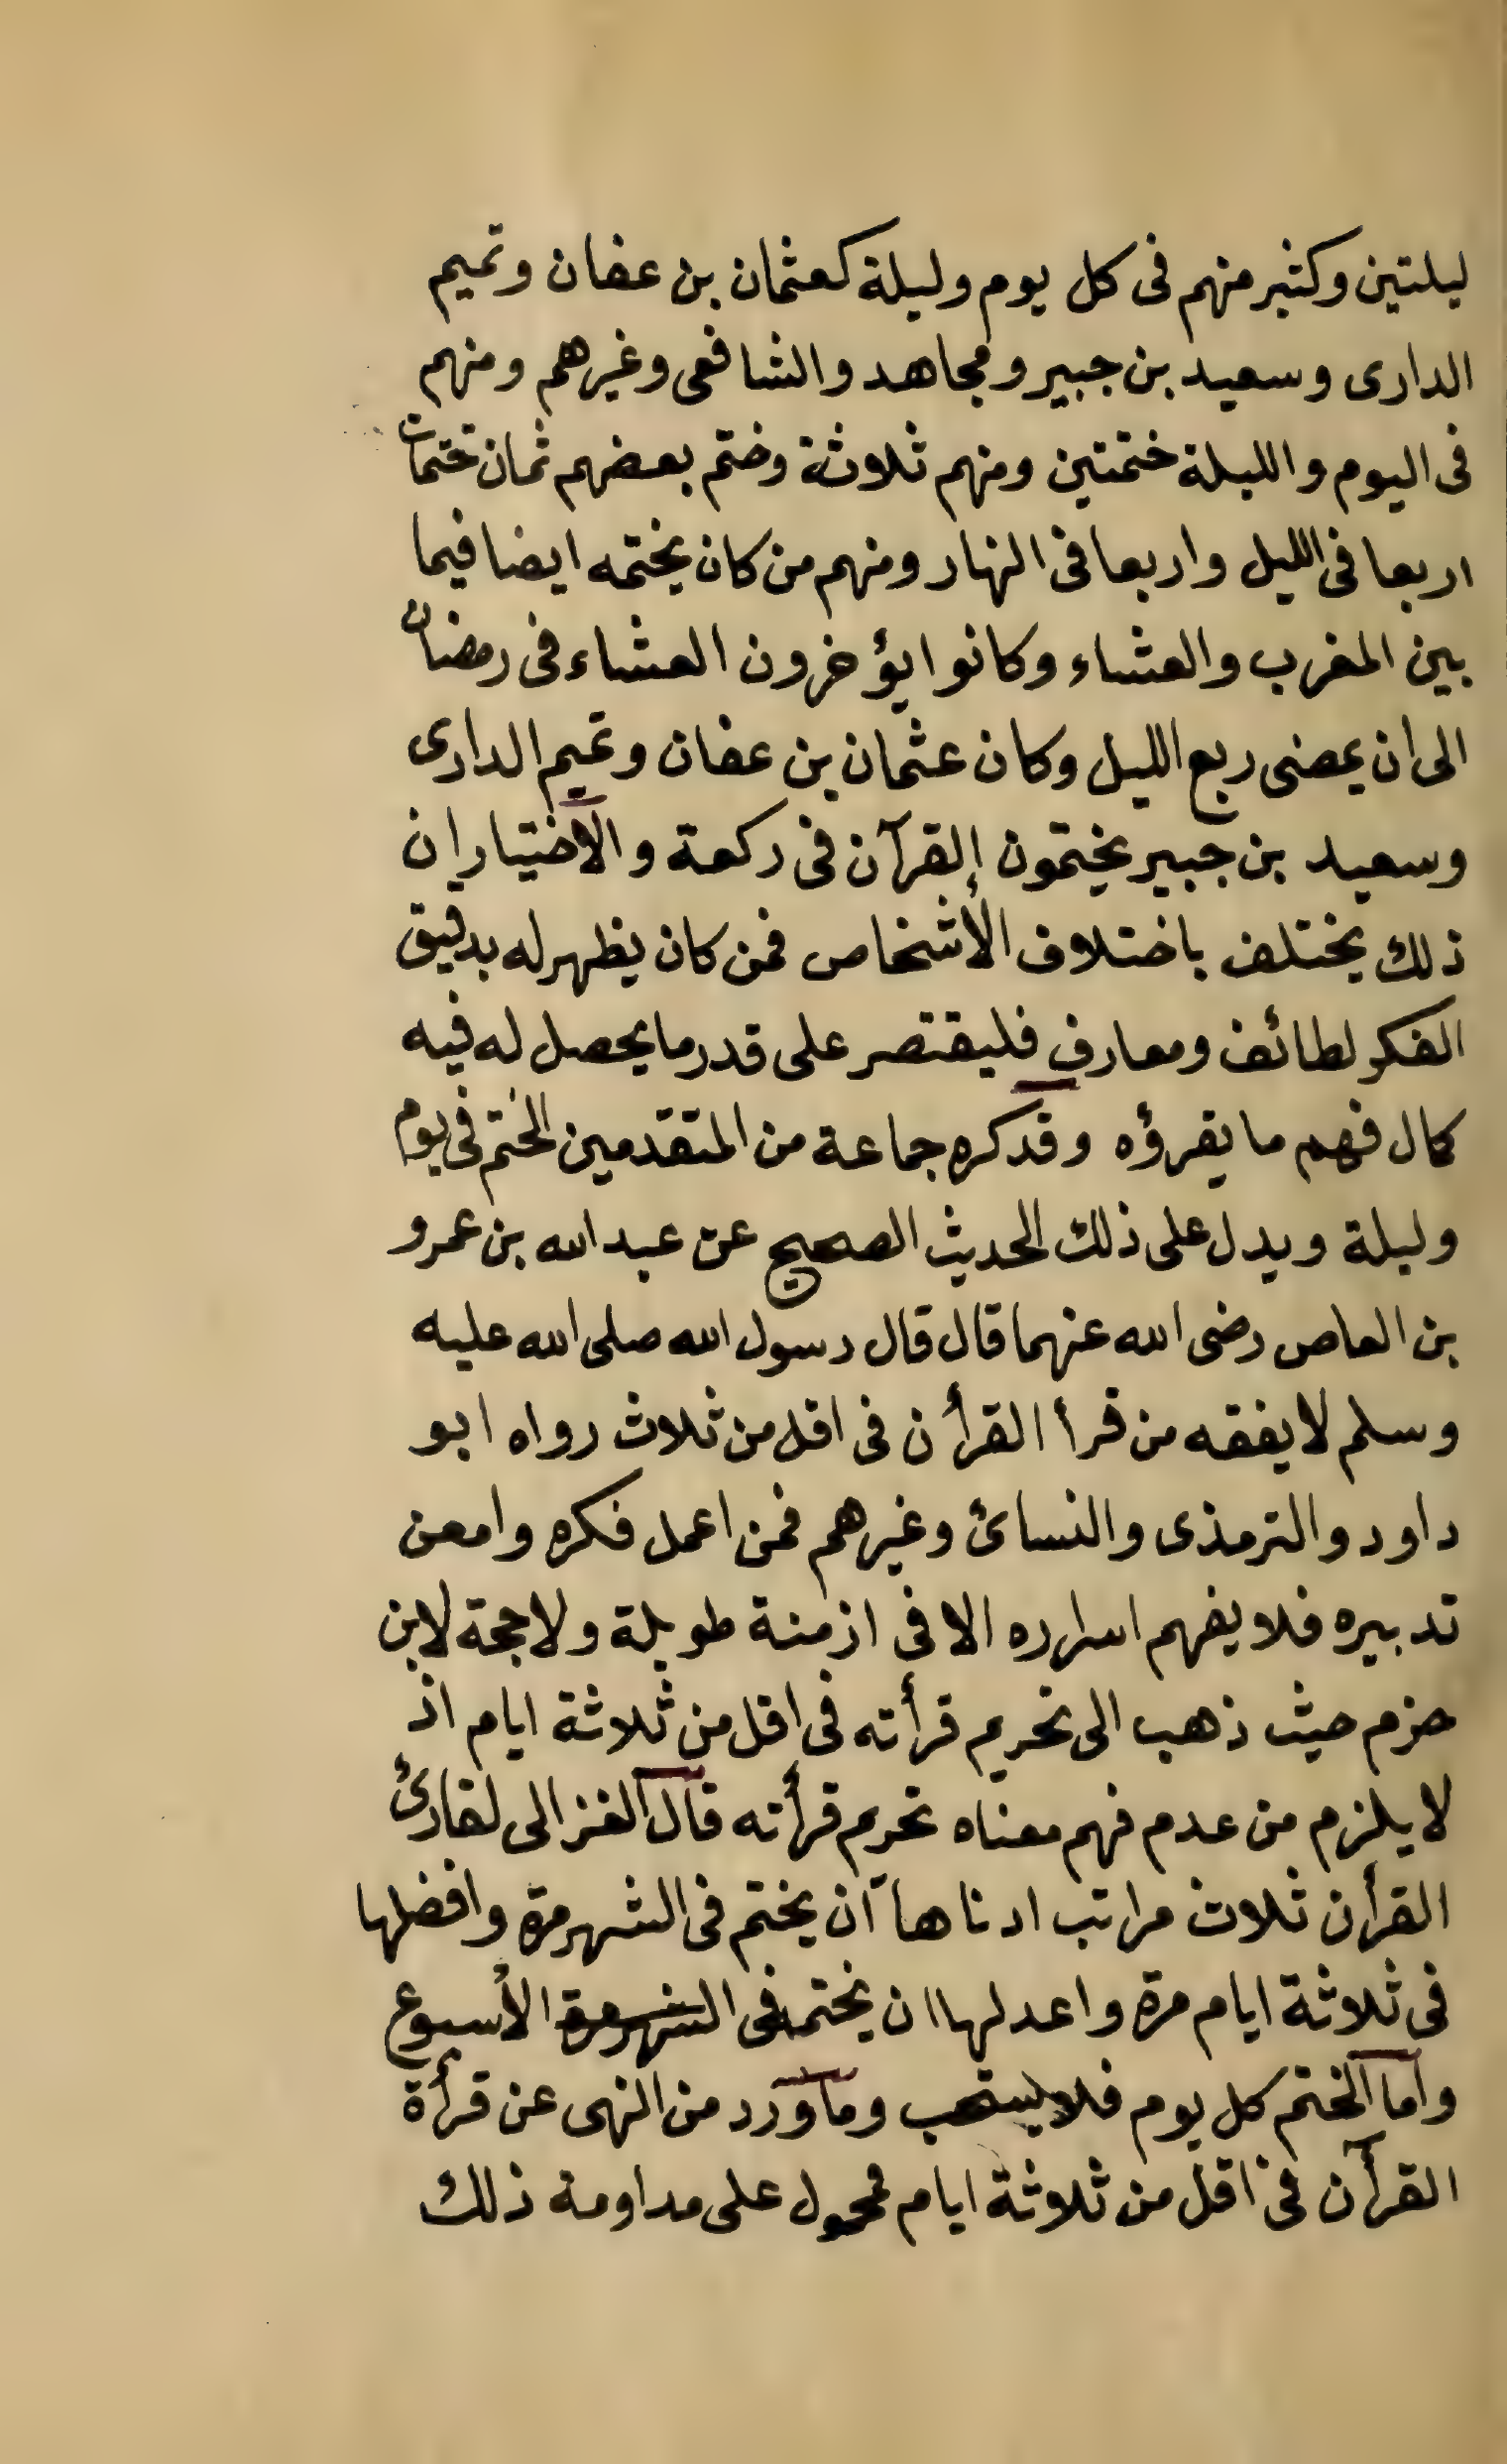 ليلتين وكثير منهم فى كل يوم وليلة كعثمان بن عفان وتميم
الدارى وسعيد بن جبير ومجاهد والشافعى وغيرهم ومنهم
فى اليوم والليلة ختمتين ومنهم ثلاثة وختم بعضهم ثمان ختمات
اربعا فى الليل واربعا فى النهار ومنهم من كان يختمه ايضا فيما
بين المغرب والعشاء وكانوا يؤخرون العشاء فى رمضان
الى ان يمضى ربع الليل وكان عثمان بن عفان وتميم الدارى
وسعيد بن جبير يختمون القرآن فى ركعة والاختيار ان
ذلك يختلف باختلاف الأشخاص فمن كان يظهر له بدقيق
الفكر لطائف ومعارف فليقتصر على قدر ما يحصل له فيه
كمال فهم ما يقرؤه وقد كره جماعة من المتقدمين الختم فى يوم
وليلة ويدل على ذلك الحديث الصحيح عن عبد الله بن عمرو
بن العاص رضى الله عنهما قال قال رسول الله صلى الله عليه
وسلم لا يفقه من قرأ القرأن فى اقل من ثلاث رواه ابو
داود والترمذى والنسائ وغيرهم فمن اعمل فكره وامعن
تدبيره فلا يفهم اسراره الا فى ازمنة طويلة ولا حجة لابن
حزم حيث ذهب الى تحريم قرأته فى اقل من ثلاثة ايام اذ
لا يلزم من عدم فهم معناه تحريم قرأته قال الغزالى لقارئ
القرأن ثلاث مراتب ادناها ان يختم فى الشهر مرة وافضلها
فى ثلاثة ايام مرة واعدلها ان يختمه فى الشهر مرة الأسبوع
واما الختم كل يوم فلا يستحب وما ورد من النهى عن قرأة
القرأن فى اقل من ثلاثة ايام فمحمول على مداومة ذلك